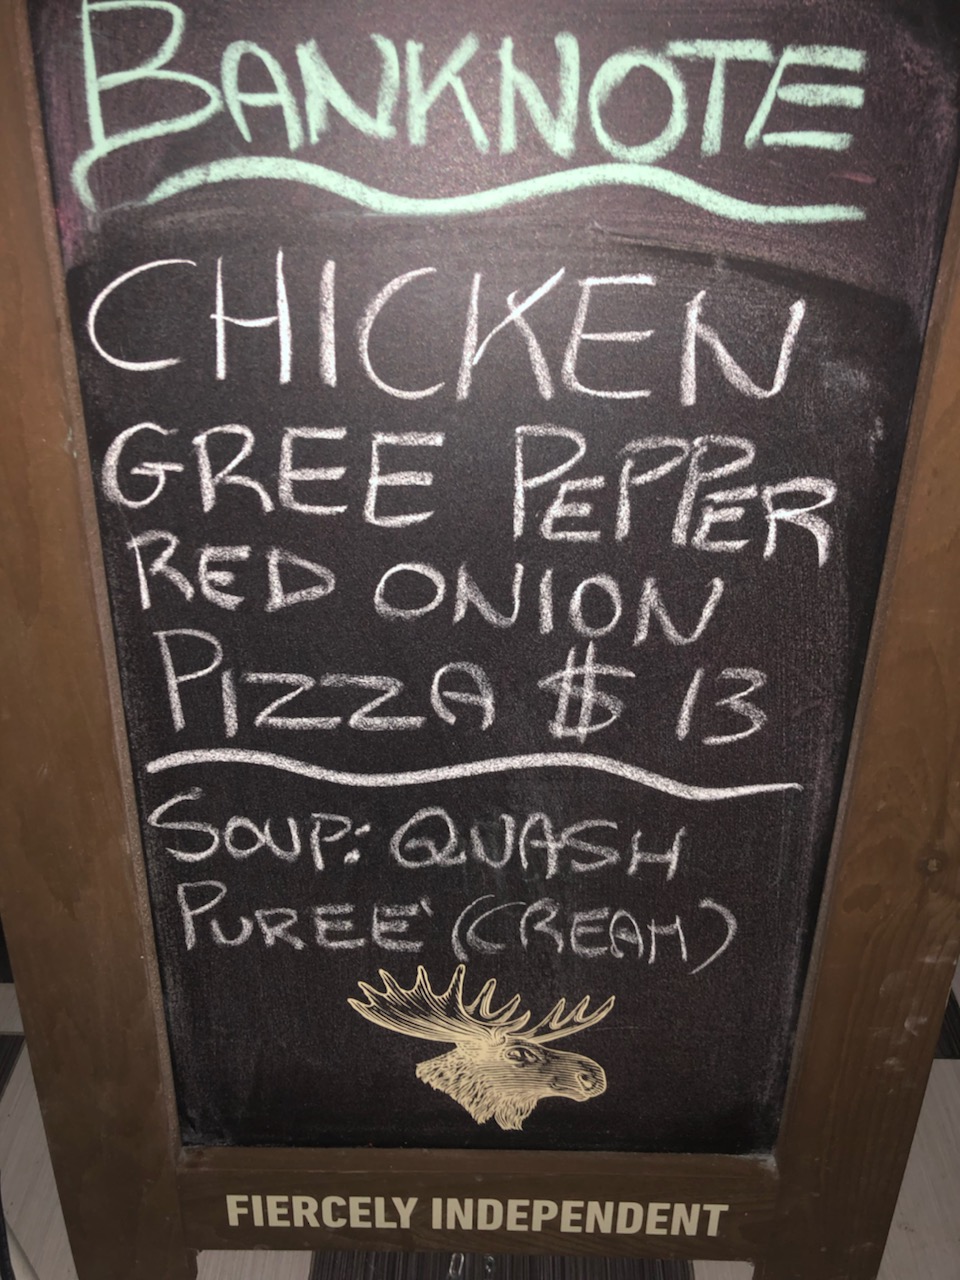 BANKNOTE
CHICKEN
GREE PEPPER
RED ONION
PIZZA $ 13
SOUP: QUASH
PUREE' (CREAM)
FIERCELY INDEPENDENT